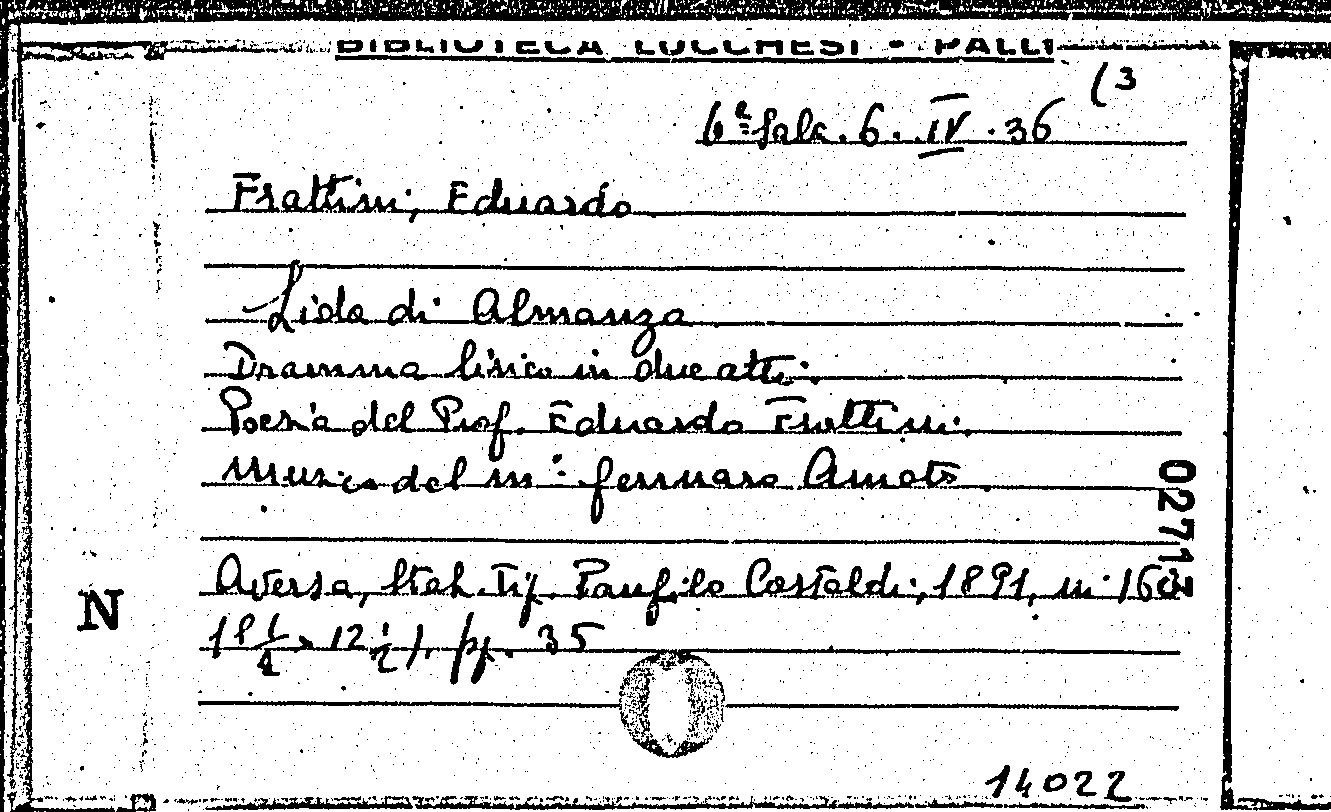 BIBLIOTECA LUCCHESI - PALLI
(3
6ª Sala. 6. IV. 36
Frattini, Eduardo
Lida di Almanza
Dramma lirico in due atti.
Poesia del Prof. Eduardo Frattini.
Musica del m.° Gennaro Amato.
02713
Aversa, Stab. Tip. Panfilo Castaldi, 1891, in 16°
N
18 1/4 x 12 1/2), pp. 35
14022